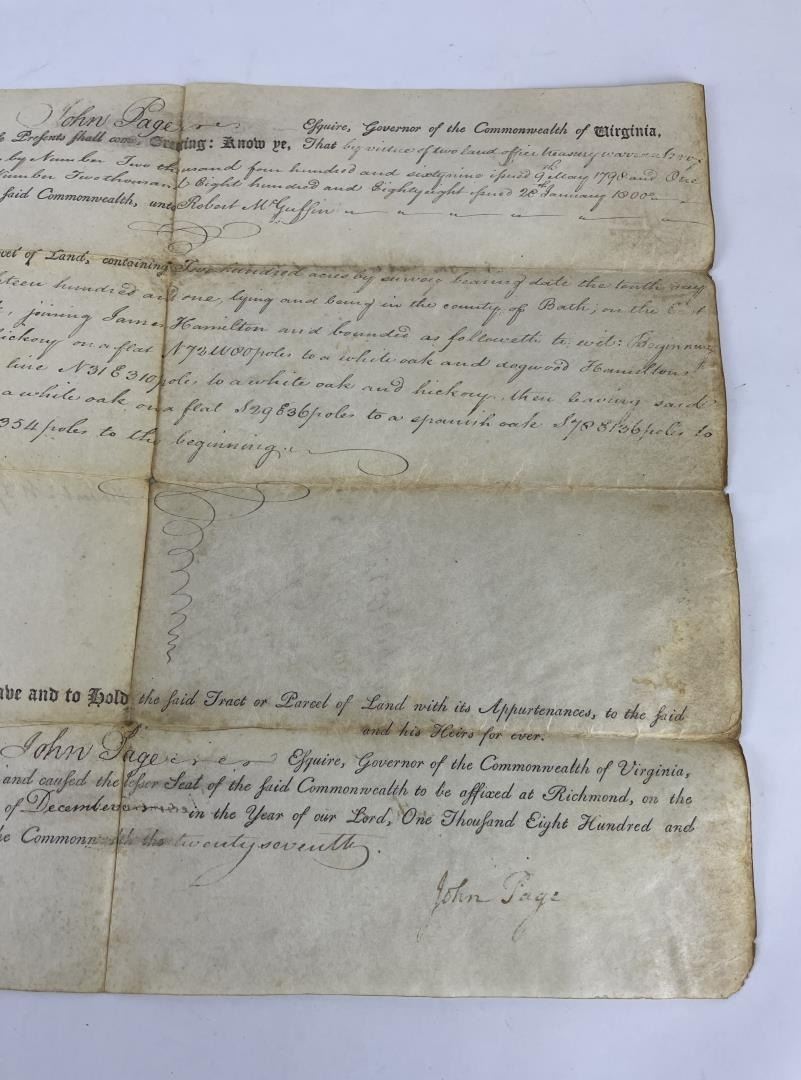 John Page Esquire, Governor of the Commonwealth of Virginia,
Presents shall come, Greeting: Know ye, That by virtue of two land office treasury warrants
by Number Two thousand four hundred and sixtynine issued 9th May 1798 and One
Number Two thousand Eight hundred and Eightyeight issued 28th January 1800
said Commonwealth, unto Robert McGuffin
of Land, containing Two hundred acres by survey bearing date the tenth day
hundred and one, lying and being in the county of Bath, on the East
joining James Hamilton and bounded as followeth to wit: Beginning
hickory on a flat N73W80poles to a white oak and dogwood Hamiltons
line N31E310poles to a white oak and hickory, then leaving said
a white oak on a flat S29E36poles to a spanish oak S78E136poles to
354poles to the beginning.
and to Hold the said Tract or Parcel of Land with its Appurtenances, to the said
and his Heirs for ever.
John Page Esquire, Governor of the Commonwealth of Virginia,
and caused the lesser Seal of the said Commonwealth to be affixed at Richmond, on the
of December in the Year of our Lord, One Thousand Eight Hundred and
Commonwealth the twentyseventh.
John Page